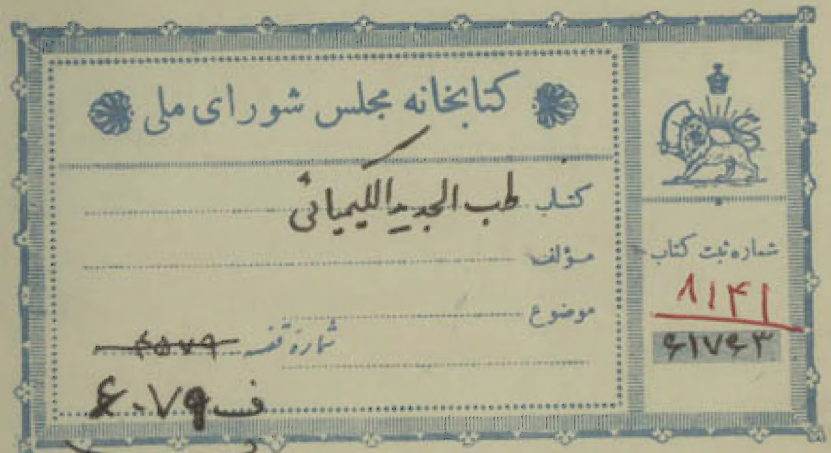 کتابخانه مجلس شورای ملی
کتاب طب الجدید الکیمیائی
مؤلف
موضوع
شمارهٔ قفسه
ف ۶۰۷۹
شماره ثبت کتاب
۸۱۴۱
۶۱۷۶۳